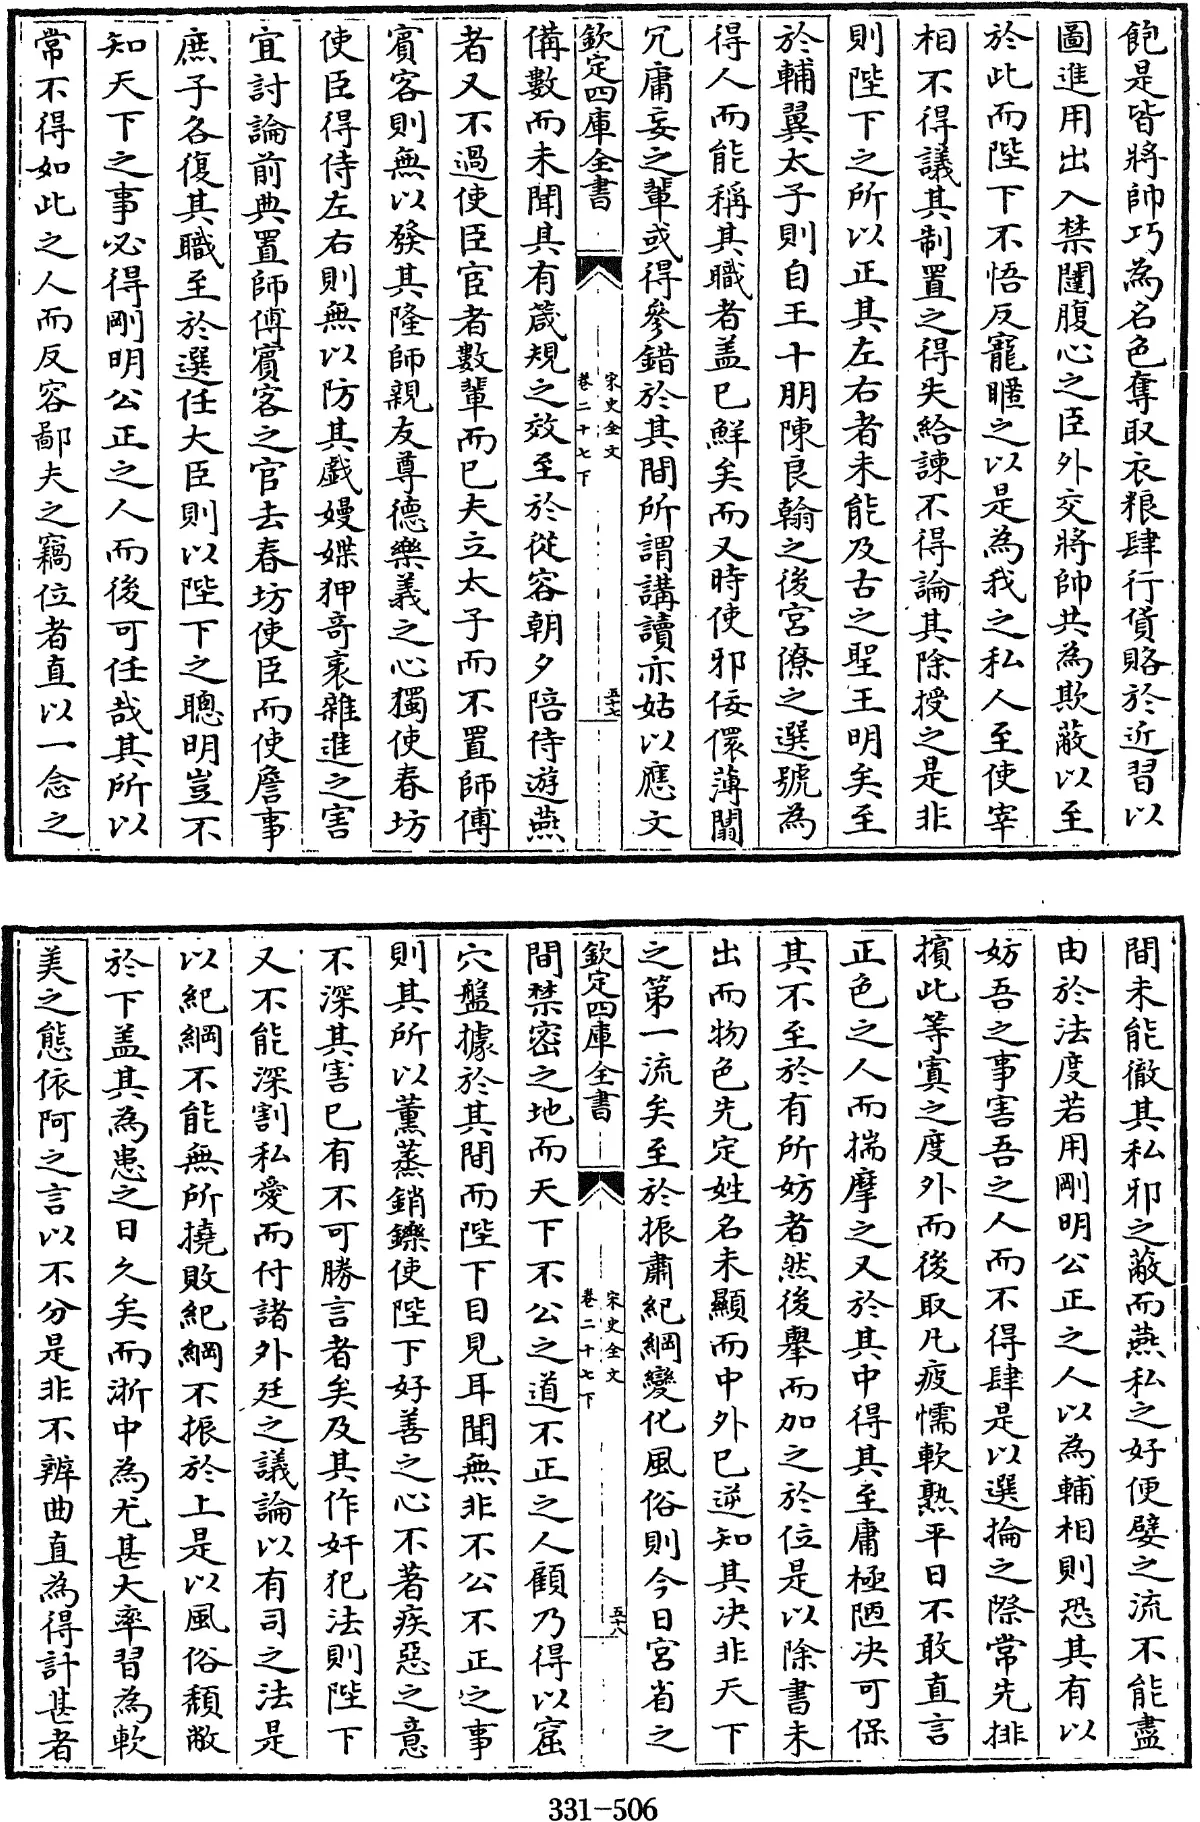 飽是皆將帥巧為名色奪取衣粮肆行貨賂於近習以
圖進用出入禁闥腹心之臣外交將帥共為欺蔽以至
於此而陛下不悟反寵暱之以是為我之私人至使宰
相不得議其制置之得失給諫不得論其除授之是非
則陛下之所以正其左右者未能及古之聖王明矣至
於輔翼太子則自王十朋陳良翰之後宮僚之選號為
得人而能稱其職者盖已鮮矣而又時使邪佞儇薄闒
冗庸妄之輩或得參錯於其間所謂講讀亦姑以應文
欽定四庫全書
宋史全文
卷二十七下
五十七
備數而未聞其有箴規之效至於從容朝夕陪侍遊燕
者又不過使臣宦者數輩而已夫立太子而不置師傅
賓客則無以發其隆師親友尊德樂義之心獨使春坊
使臣得侍左右則無以防其戲嫚媟狎奇衺雜進之害
宜討論前典置師傅賓客之官去春坊使臣而使詹事
庶子各復其職至於選任大臣則以陛下之聰明豈不
知天下之事必得剛明公正之人而後可任哉其所以
常不得如此之人而反容鄙夫之竊位者直以一念之
間未能徹其私邪之蔽而燕私之好便嬖之流不能盡
由於法度若用剛明公正之人以為輔相則恐其有以
妨吾之事害吾之人而不得肆是以選掄之際常先排
擯此等寘之度外而後取凡疲懦軟熟平日不敢直言
正色之人而揣摩之又於其中得其至庸極陋决可保
其不至於有所妨者然後舉而加之於位是以除書未
出而物色先定姓名未顯而中外已逆知其决非天下
之第一流矣至於振肅紀綱變化風俗則今日宮省之
欽定四庫全書
宋史全文
卷二十七下
五十八
間禁密之地而天下不公之道不正之人顧乃得以窟
穴盤據於其間而陛下目見耳聞無非不公不正之事
則其所以薰蒸銷鑠使陛下好善之心不著疾惡之意
不深其害已有不可勝言者矣及其作奸犯法則陛下
又不能深割私愛而付諸外廷之議論以有司之法是
以紀綱不能無所撓敗紀綱不振於上是以風俗頽敝
於下盖其為患之日久矣而浙中為尤甚大率習為軟
美之態依阿之言以不分是非不辨曲直為得計甚者
331-506